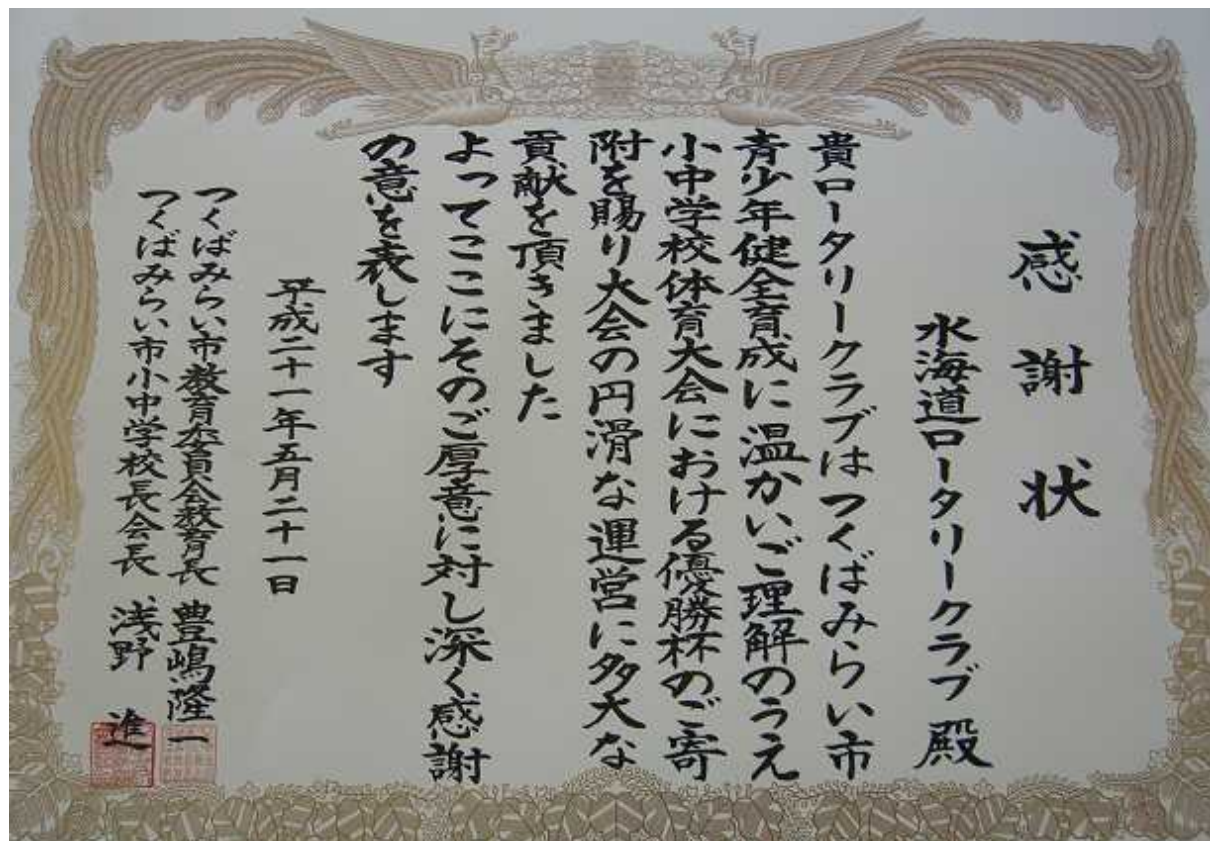 感謝状
水海道ロータリークラブ 殿
貴ロータリークラブはつくばみらい市
青少年健全育成に温かいご理解のうえ
小中学校体育大会における優勝杯のご寄
附を賜り大会の円滑な運営に多大な
貢献を頂きました
よってここにそのご厚意に対し深く感謝
の意を表します
平成二十一年五月二十一日
つくばみらい市教育委員会教育長 豊嶋隆一
つくばみらい市小中学校長会長 浅野 進